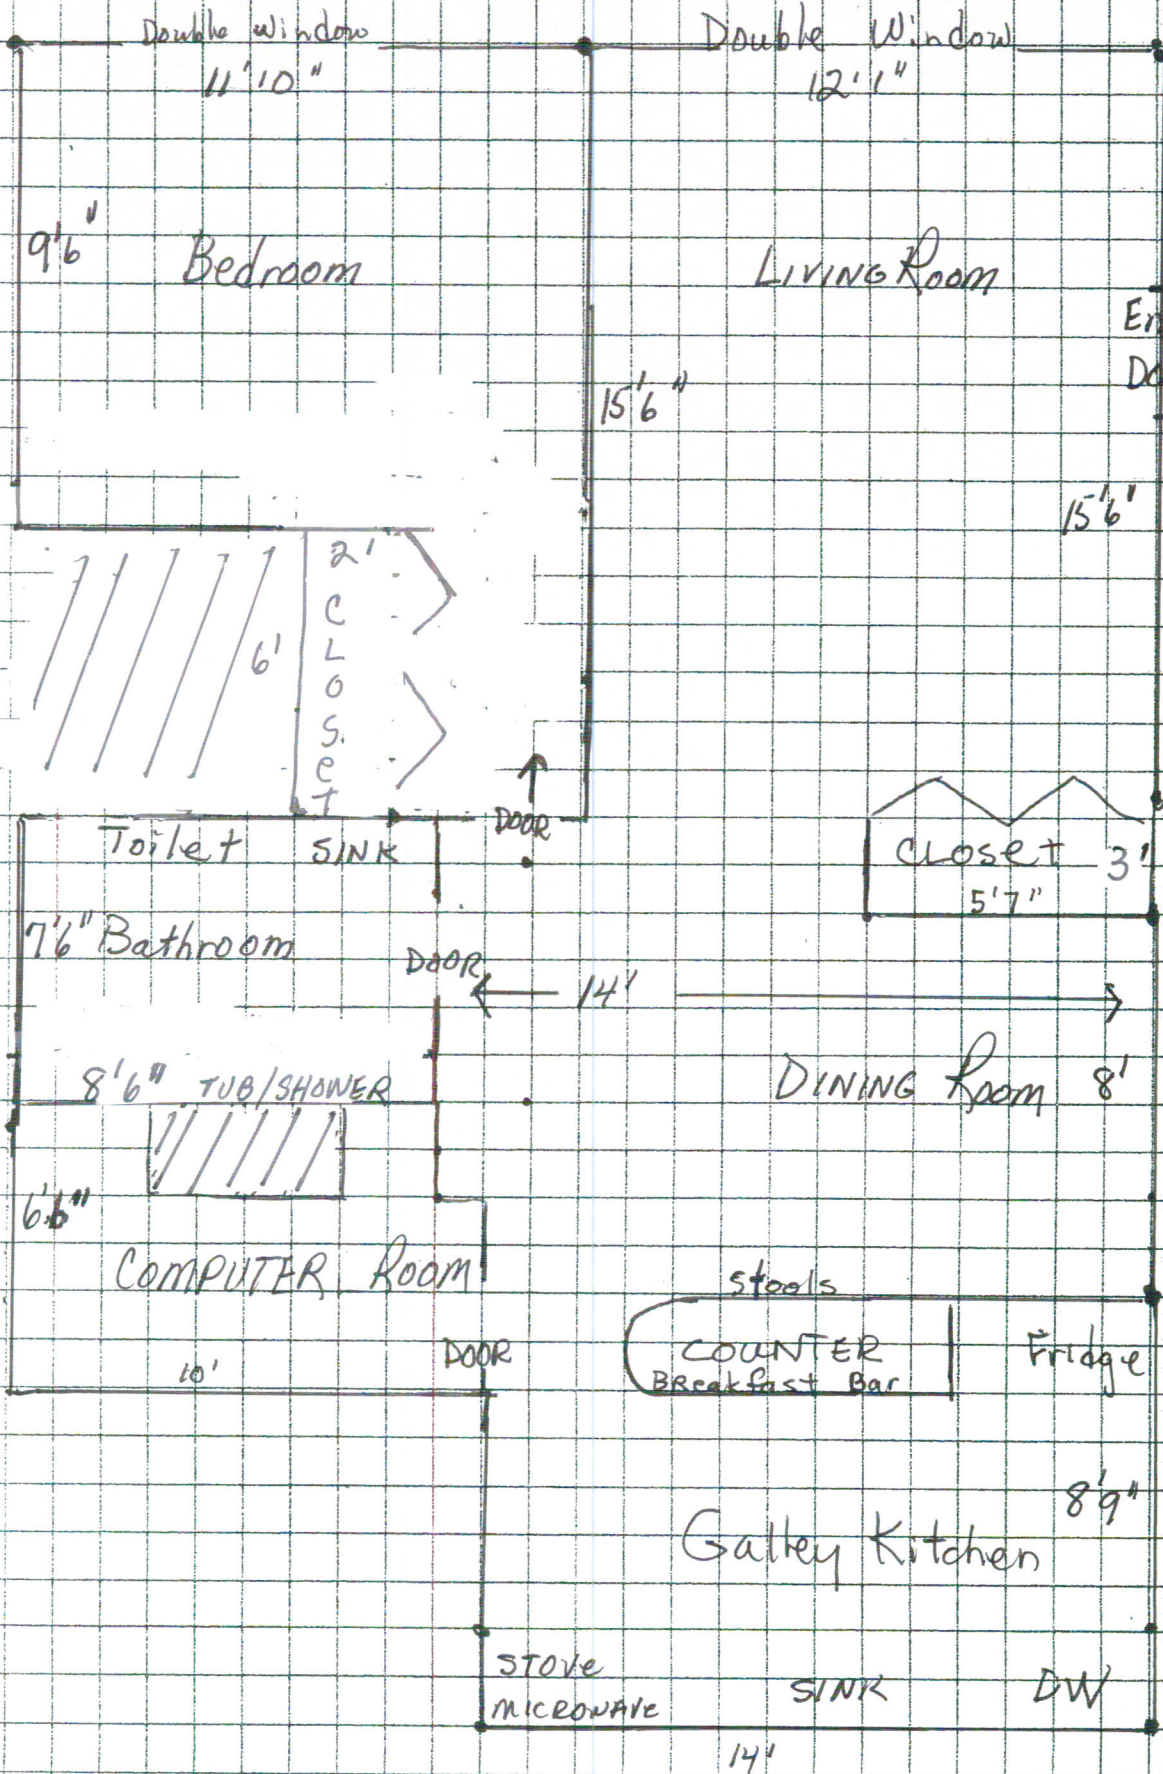 Double Window
11'10"
Double Window
12'1"
9'6"
Bedroom
LIVING Room
En
Do
15'6"
15'6"
2'
CLOSeT
6'
DOOR
Toilet
SINK
CLOSET
3'
5'7"
7'6"
Bathroom
DOOR
14'
8'6"
TUB/SHOWER
DINING Room
8'
6'6"
COMPUTER Room
10'
DOOR
Stools
COUNTER
BReakfast Bar
Fridge
8'9"
Galley Kitchen
STOVe
MICROWAVe
SINK
DW
14'